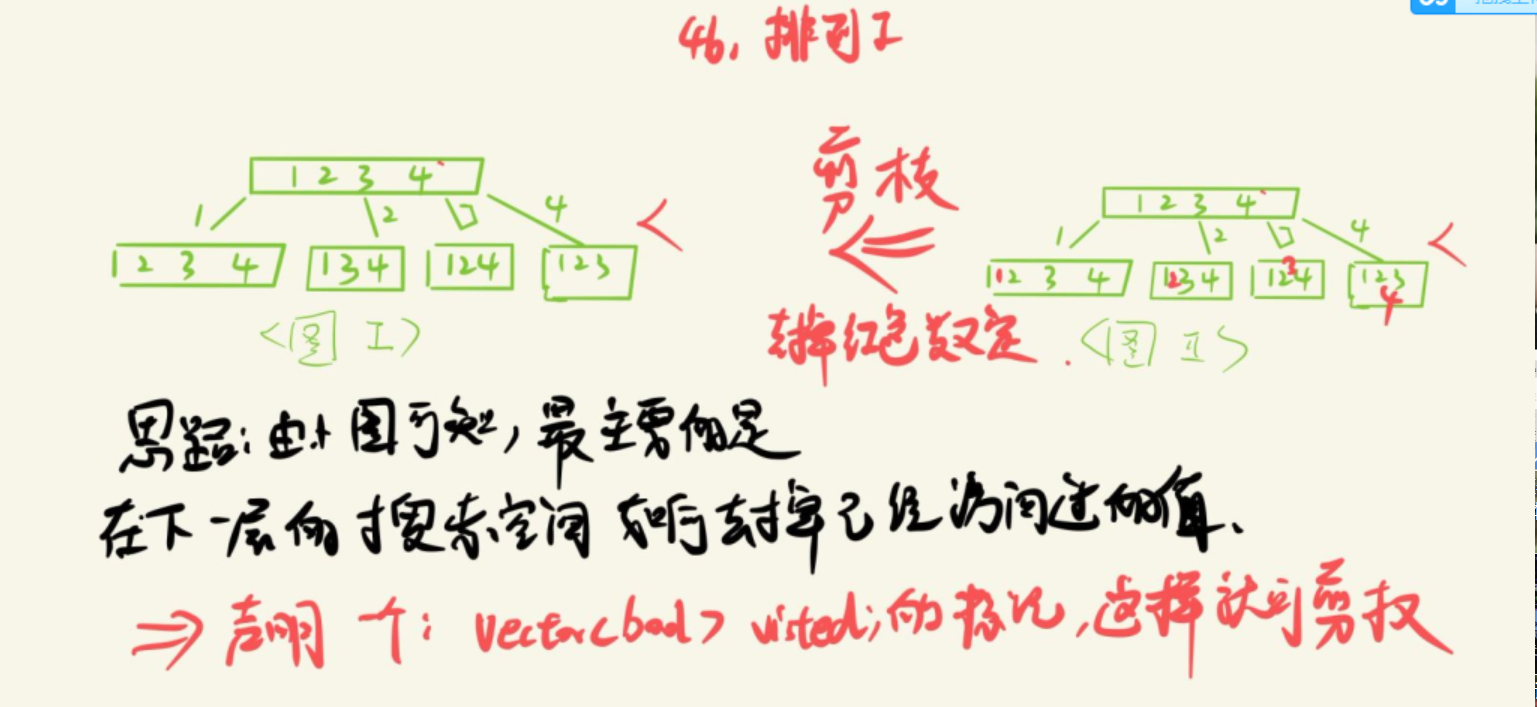 46. 排列 I
1 2 3 4
1 2 3 4
1 2 3 4
1 3 4
1 2 4
1 2 3
<图 I>
剪枝
去掉红色数字.
1 2 3 4
1 2 3 4
1 2 3 4
1 2 3 4
1 2 3 4
1 2 3 4
<图 II>
思路: 由图可知, 最主要的是
在下一层的搜索空间如何去掉已经访问过的值、
⇒ 声明一个: vector<bool> visted; 的标记, 这样就可剪枝